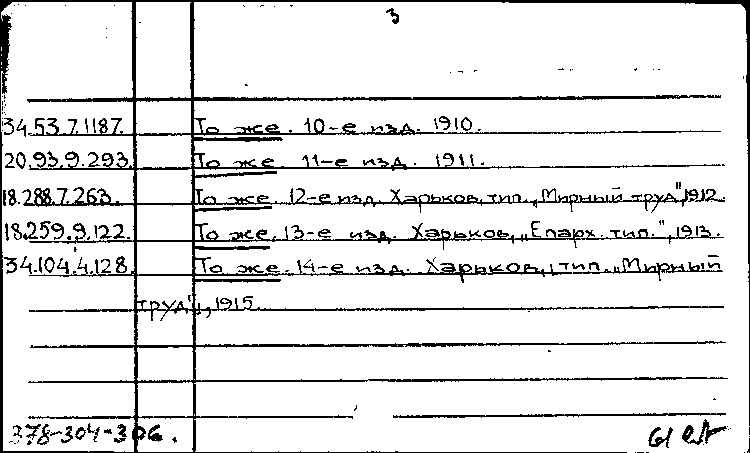 3
34.53.7.1187. То же. 10-е изд. 1910.
20.93.9.293. То же. 11-е изд. 1911.
18.288.7.263. То же. 12-е изд. Харьков, тип. „Мирный труд", 1912.
18.259.9.122. То же. 13-е изд. Харьков, „Епарх. тип.", 1913.
34.104.4.128. То же. 14-е изд. Харьков, тип. „Мирный
труд", 1915.
378-304-306.